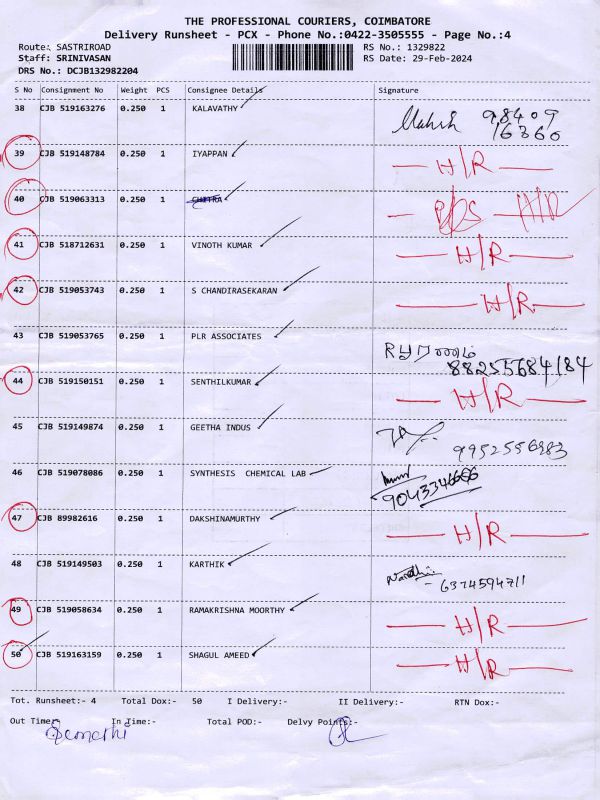 THE PROFESSIONAL COURIERS, COIMBATORE
Delivery Runsheet - PCX - Phone No.:0422-3505555 - Page No.:4
Route: SASTRIROAD RS No.: 1329822
Staff: SRINIVASAN RS Date: 29-Feb-2024
DRS No.: DCJB132982204
S No Consignment No Weight PCS Consignee Details Signature
38 CJB 519163276 0.250 1 KALAVATHY 98409
16360
39 CJB 519148784 0.250 1 IYAPPAN H/R
40 CJB 519063313 0.250 1 H/R
41 CJB 518712631 0.250 1 VINOTH KUMAR H/R
42 CJB 519053743 0.250 1 S CHANDIRASEKARAN H/R
43 CJB 519053765 1 PLR ASSOCIATES
44 CJB 519150151 0.250 1 SENTHILKUMAR H/R
45 CJB 519149874 0.250 1 GEETHA INDUS
46 CJB 519078086 0.250 1 SYNTHESIS CHEMICAL LAB
47 CJB 89982616 0.250 1 DAKSHINAMURTHY H/R
48 CJB 519149503 0.250 1 KARTHIK 6374594711
49 CJB 519058634 0.250 1 RAMAKRISHNA MOORTHY H/R
50 CJB 519163159 0.250 1 SHAGUL AMEED H/R
Tot. Runsheet:- 4 Total Dox:- 50 I Delivery:- II Delivery:- RTN Dox:-
Out Time:- In Time:- Total POD:- Delvy Points:-